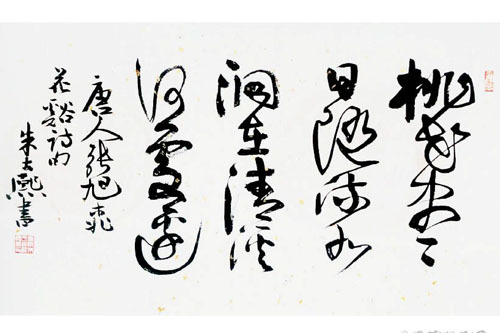 桃花尽
日随流水
洞在清溪
何處邊
唐人張旭桃
花谿詩句
朱大熙書